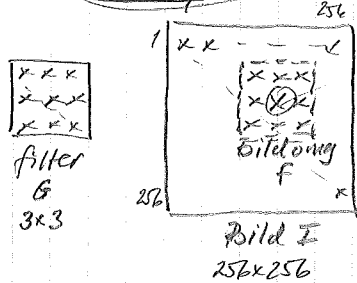 256
1
x x - - - x
x x x
x x x
x x x
filter
G
3x3
x x x
x x x
x x x
Bildomg
f
x
256
Bild I
256x256